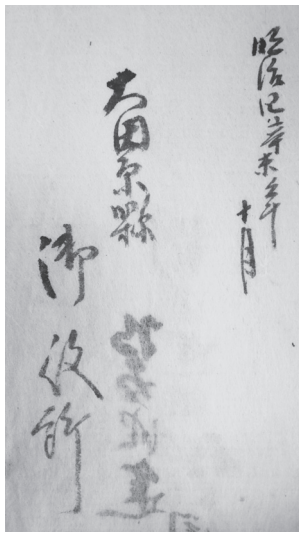 明治四辛未年
十月
大田原縣
御役所